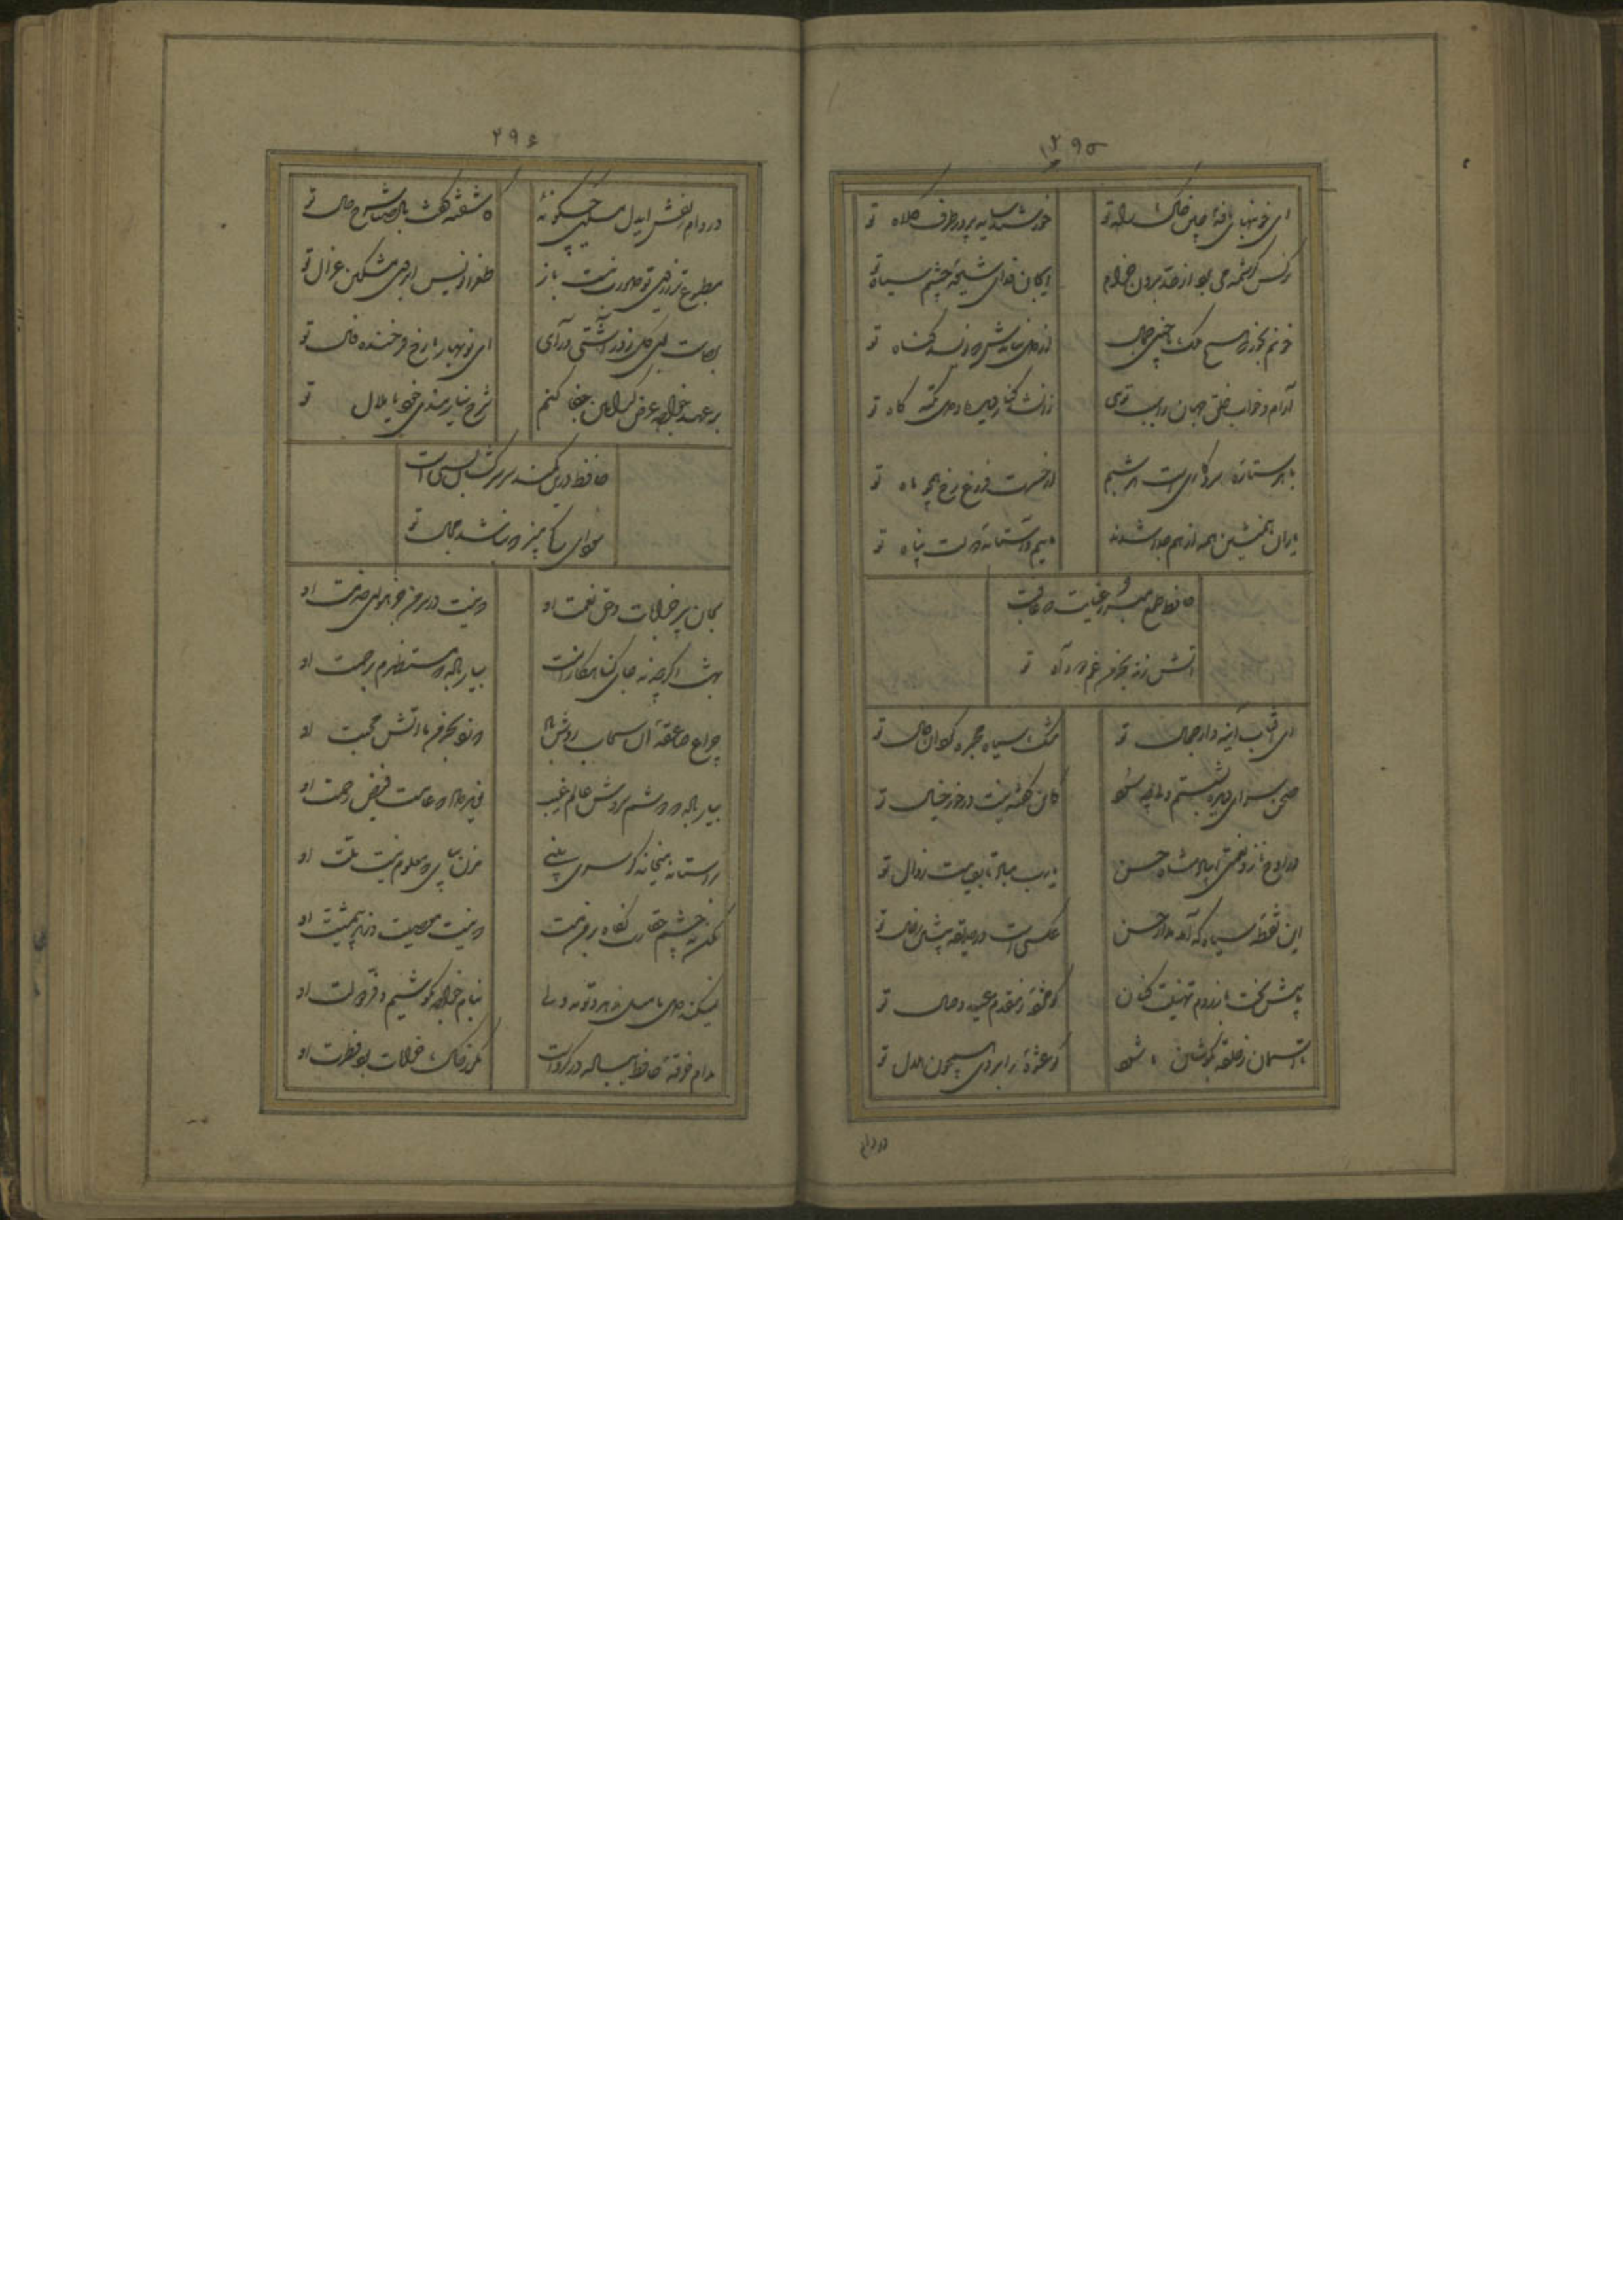 ۲۹۵
ای خونبهای نافهٔ چین خاک راه تو
خورشید سایه پرور طرف کلاه تو
نرگس کرشمه می برد از حد برون خرام
ای جان فدای شیوهٔ چشم سیاه تو
خونم بخور که هیچ ملک با چنین جمال
از دل نیایدش که نویسد گناه تو
آرام و خواب خلق جهان را سبب توی
زان شد کنار دیده و دل تکیه گاه تو
با هر ستاره سر و کاری است هر شبم
از حسرت فروغ رخ همچو ماه تو
یاران همنشین همه از هم جدا شدند
مائیم و آستانه دولت پناه تو
حافظ طمع مبر ز عنایت که عاقبت
آتش زند بخرمن غم دود آه تو
ای آفتاب آینه دار جمال تو
مشک سیاه مجمره گردان خال تو
صحن سرای دیده بشستم ولی چه سود
کاین گوشه نیست در خور خیال تو
در اوج ناز و نعمتی ای پادشاه حسن
یارب مباد تا بقیامت زوال تو
این نقطه سیاه که آمد مدار حسن
عکسی است در حدیقه بینش ز خال تو
تا پیش بخت باز روم تهنیت کنان
کو مژدهٔ ز مقدم عید وصال تو
تا آسمان ز حلقه بگوشان ما شود
کو عشوهٔ ز ابروی همچون هلال تو
در دام
۲۹۶
در دام زلفش ای دل مسکین چگونهٔ
کاشفته گفت باد صبا شرح حال تو
مطبوع تر ز نقش تو صورت نبست باز
طغرا نویس ابروی مشکین مثال تو
برخاست بوی گل ز در آشتی درآی
ای نوبهار ما رخ فرخنده فال تو
بر عهد خواجه عرض کدامین جفا کنم
شرح نیازمندی خود یا ملال تو
حافظ درین کمند سر سرکشان بسی است
سودای کج مپز که نباشد مجال تو
بجان پیر خرابات و حق نعمت او
که نیست در سر من جز هوای خدمت او
بهشت اگر چه نه جای گناهکارانست
بیار باده که مستظهرم برحمت او
چراغ صاعقهٔ آن سحاب روشن باد
که زد بخرمن ما آتش محبت او
بیار باده که دوشم سروش عالم غیب
نوید داد که عامست فیض رحمت او
بر آستانه میخانه گر سری بینی
مزن بپای که معلوم نیست نیت او
مکن به چشم حقارت نگاه در من مست
که نیست معصیت و زهد بی مشیت او
نمیکند دل ما میل زهد و توبه ولی
بنام خواجه بکوشیم و فر دولت او
مدام خرقهٔ حافظ بباده در گرو است
مگر ز خاک خرابات بود فطرت او